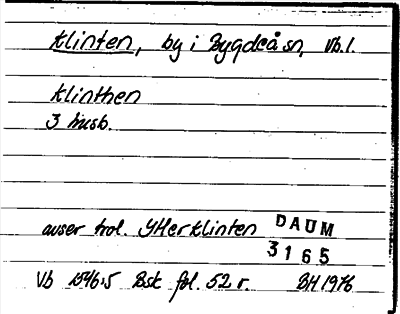 Klinten, by i Bygdeå sn, Vb.l.
Klinthen
3 husb.
avser trol. Ytterklinten
DAUM
3165
Vb 1546:5 Bsk fol. 52 r. BH 1976